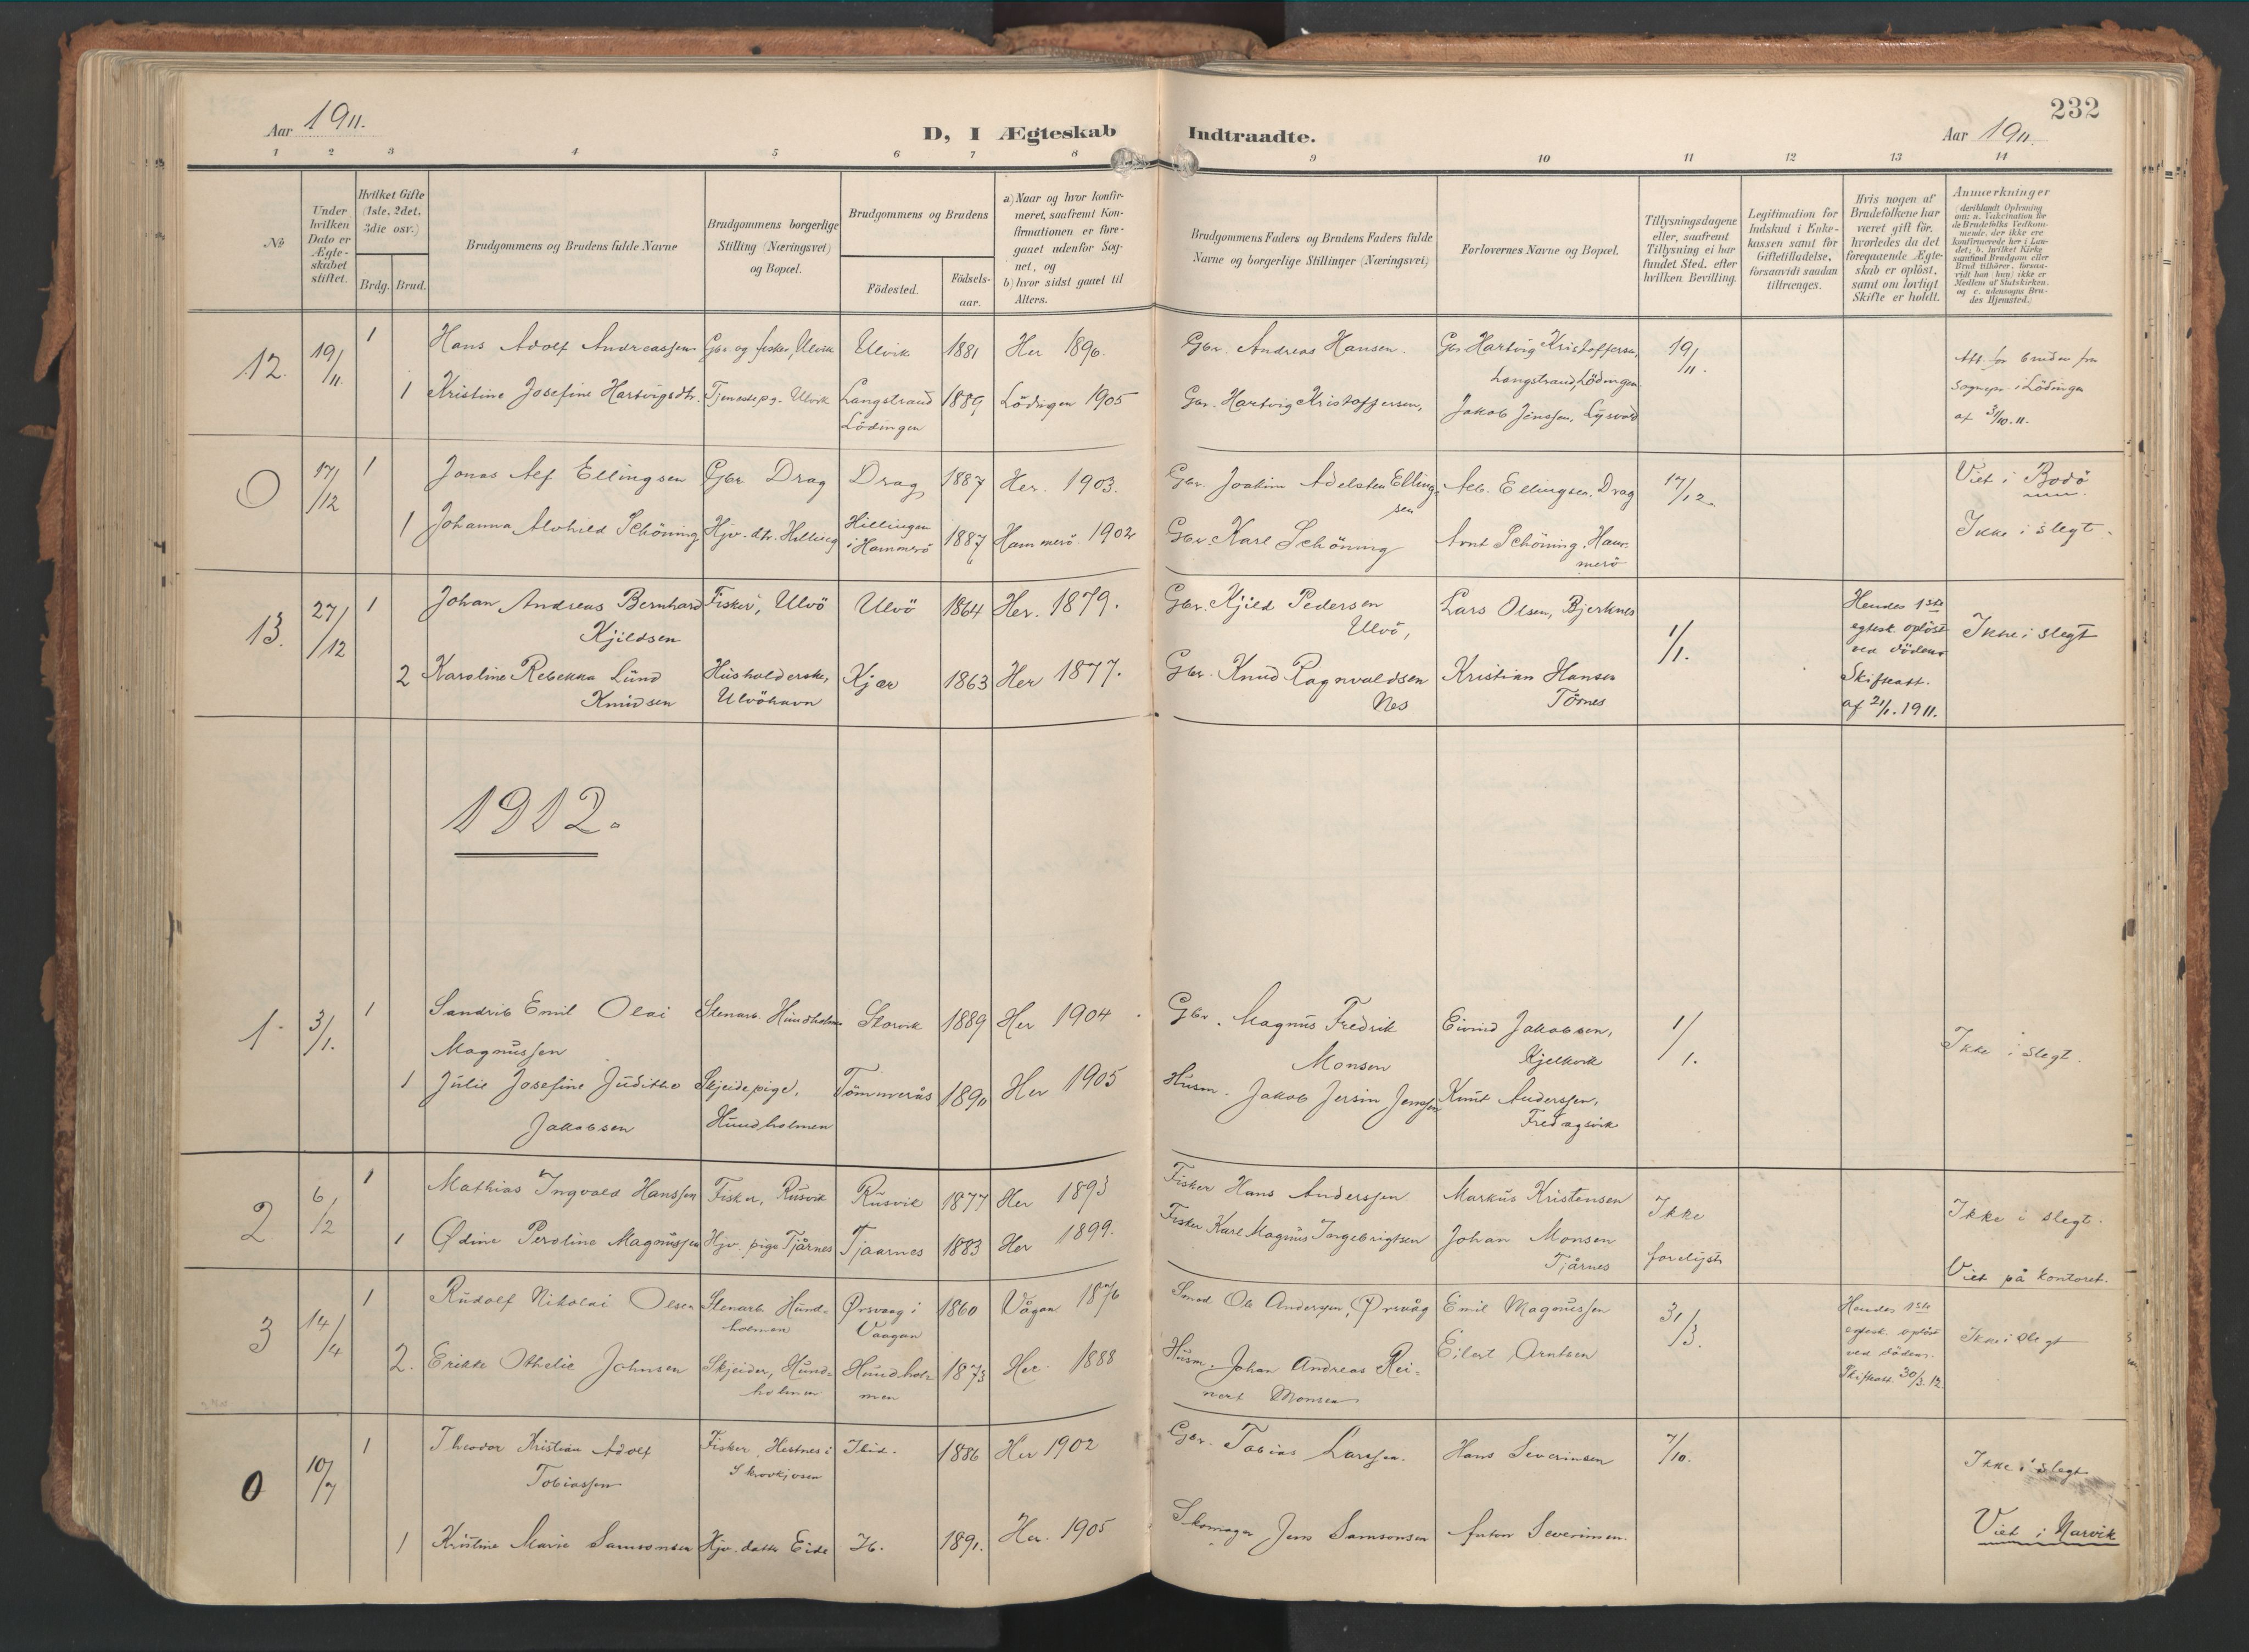 232
Aar 1911.
D, I Ægteskab Indtraadte.
Aar 1911.
1 2 3 4 5 6 7 8 9 10 11 12 13 14
No
Under hvilken Dato er Ægteskabet stiftet.
Hvilket Gifte (1ste, 2det, 3die osv.)
Brdg. Brud.
Brudgommens og Brudens fulde Navne
Brudgommens borgerlige Stilling (Næringsvei) og Bopæl.
Brudgommens og Brudens
Födested.
Födsels-aar.
a) Naar og hvor konfirmeret, saafremt Konfirmationen er foregaaet udenfor Sognet, og
b) hvor sidst gaaet til Alters.
Brudgommens Faders og Brudens Faders fulde Navne og borgerlige Stillinger (Næringsvei)
Forlovernes Navne og Bopæl.
Tillysningsdagene eller, saafremt Tillysning ei har fundet Sted, efter hvilken Bevilling.
Legitimation for Indskud i Enkekassen samt for Giftetilladelse, forsaavidt saadan tiltrænges.
Hvis nogen af Brudefolkene har været gift för, hvorledes da det foregaaende Ægteskab er oplöst, samt om lovligt Skifte er holdt.
Anmerkninger (deriblandt Oplysning om: a. Vakcination for de Brudefolks Vedkommende, der ikke ere konfirmerede her i Landet; b. hvilket Kirkesamfund Brudgom eller Brud tilhører, forsaavidt han (hun) ikke er Medlem af Statskirken, og c. udensogns Brudes Hjemsted.)
12. 19/11. 1 Hans Adolf Andreassen Gbr. og fisker, Ulvik Ulvik 1881 Her 1896. Gbr. Andreas Hansen. Gbr. Hartvig Kristoffersen, Langstrand, Lödingen 19/11. Att. for bruden fra
1 Kristine Josefine Hartvigsdtr. Tjenestepg. Ulvik Langstrand Lödingen 1889 Lödingen 1905 Gbr. Hartvig Kristoffersen, Jakob Jenssen, Lysvold sognepr. i Lödingen af 31/10.11.
0 17/12 1 Jonas Alf Ellingsen Gbr. Drag Drag 1887 Her. 1903. Gbr. Joakim Adelsten Ellingsen Alb. Ellingsen, Drag 17/12. Viet i Bodö
1 Johanna Alvhild Schöning Hjv. dtr. Helling Hillingen i Hammerö 1887 Hammerö 1902 Gbr. Karl Schöning Arnt Schöning, Hammerö Ikke i slegt.
13. 27/12 1 Johan Andreas Bernhard Kjildsen Fisker, Ulvö Ulvö 1864 Her. 1879. Gbr. Kjild Pedersen Ulvö, Lars Olsen, Bjerknes 1/1. Hendes 1ste egtesk. oplöst ved döden Skifteatt. af 21/1. 1911. Ikke i slegt
2 Karoline Rebekka Lund Knudsen Husholderske, Ulvöhavn Kjær 1863 Her 1877. Gbr. Knud Ragnvaldsen Nes Kristian Hansen Törnes
1912.
1. 3/1. 1 Sandrib Emil Olai Magnussen Stenarb. Hundholmen Storvik 1889 Her 1904 Gbr. Magnus Fredrik Monsen Eivind Jakobsen, Kjelkvik 1/1. Ikke i slegt.
1 Julie Josefine Judithe Jakobsen Skjeidepige, Hundholmen Tömmerås 1890 Her 1905 Husm. Jakob Jersin Jenssen Knut Anderssen, Fredagsvik
2 6/2 1 Mathias Ingvald Hanssen Fisker, Rusvik Rusvik 1877 Her 1893 Fisker Hans Anderssen Markus Kristensen Ikke forelyst Ikke i slegt.
1 Ødine Peroline Magnussen Hjv. pige Tjårnes Tjaarnes 1883 Her 1899. Fisker Karl Magnus Ingebrigtsen Johan Monsen Tjårnes Viet på kontoret.
3 14/4 1 Rudolf Nikolai Olsen Stenarb. Hundholmen Ørsvaag i Vaagan 1860 Vågan 1876 Smed Ole Andersen, Ørsvåg Emil Magnussen 31/3. Hendes 1ste egtesk. oplöst ved döden. Skifteatt. 30/3.12. Ikke i slegt
2. Erikke Othelie Johnsen Skjeider, Hundholmen Hundholmen 1873 Her. 1888 Husm. Johan Andreas Reinert Monsen Eilert Arntsen
0 10/7 1 Theodor Kristian Adolf Tobiassen Fisker, Hestnes i Skrovkjosen Ibid. 1886 Her 1902 Gbr. Tobias Larssen. Hans Severinsen 7/10. Ikke i slegt
1 Kristine Marie Samsonsen Hjv. datter Eide Ib. 1891. Her. 1905 Skomager Jens Samsonsen Anton Severinsen. Viet i Narvik